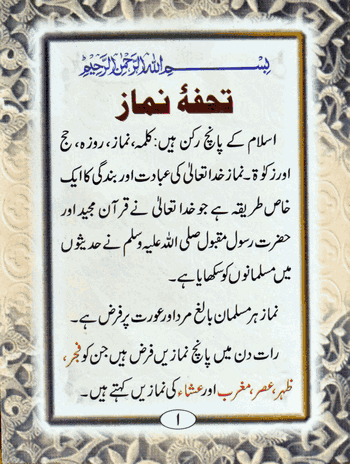 بسم اللہ الرحمن الرحیم
تحفۂ نماز
اسلام کے پانچ رکن ہیں: کلمہ، نماز، روزہ، حج
اور زکوٰۃ۔ نماز خدا تعالیٰ کی عبادت اور بندگی کا ایک
خاص طریقہ ہے جو خدا تعالیٰ نے قرآن مجید اور
حضرت رسول مقبول صلی اللہ علیہ وسلم نے حدیثوں
میں مسلمانوں کو سکھایا ہے۔
نماز ہر مسلمان بالغ مرد اور عورت پر فرض ہے۔
رات دن میں پانچ نمازیں فرض ہیں جن کو فجر،
ظہر، عصر، مغرب اور عشاء کی نمازیں کہتے ہیں۔
۱